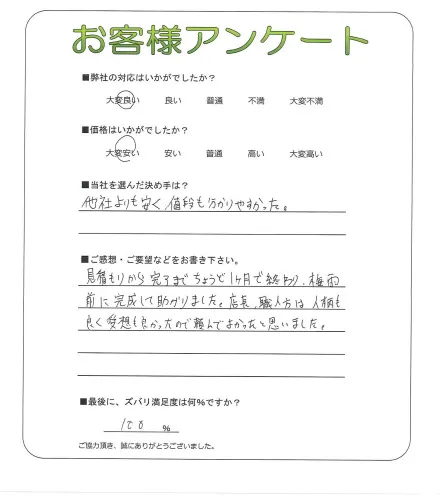 お客様アンケート
■弊社の対応はいかがでしたか？
大変良い　良い　普通　不満　大変不満
■価格はいかがでしたか？
大変安い　安い　普通　高い　大変高い
■当社を選んだ決め手は？
他社よりも安く、値段も分かりやすかった。
■ご感想・ご要望などをお書き下さい。
見積もりから完了までちょうど1ヶ月で終わり、梅雨
前に完成して助かりました。店長、職人方は人柄も
良く愛想も良かったので頼んでよかったと思いました。
■最後に、ズバリ満足度は何%ですか？
100 %
ご協力頂き、誠にありがとうございました。